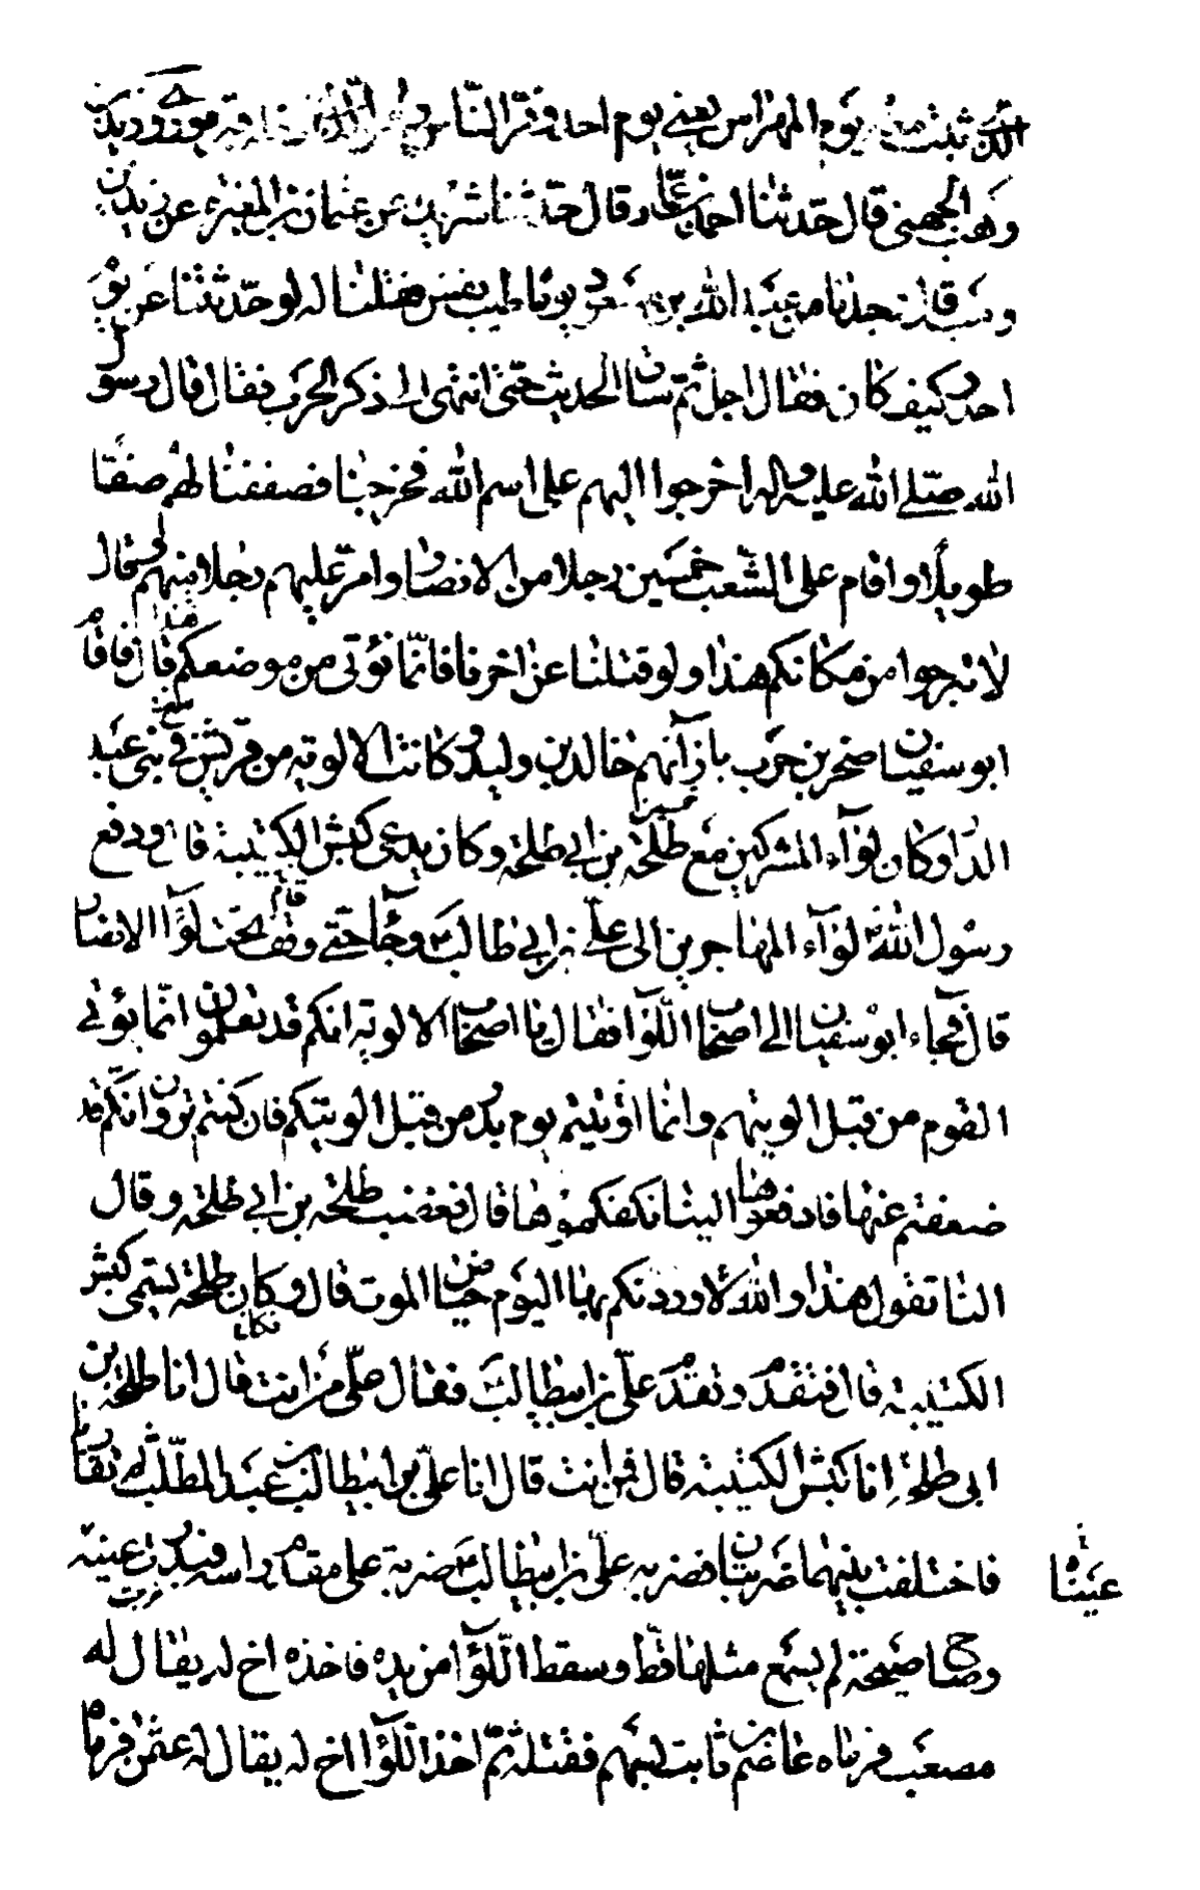 الذين ثبتوا معه يوم المهراس يعنى يوم احد وفرّ النّاس
وهب الجهنى قال حدثنا احمد بن عمار قال حدثنا شريك عن عثمان بن المغيره عن زيد بن
وهب قال وجدنا من عبد الله بن مسعود يوما طيب نفس فقلنا له لو حدثتنا عن يوم
احد وكيف كان فقال اجل ثمّ ساق الحديث حتى انتهى الى ذكر الحرب فقال قال رسول
الله صلّى الله عليه واله اخرجوا اليهم على اسم الله فخرجنا فصففنا لهم صفّا
طويلا واقام على الشعب خمسين رجلا من الانصار وامّر عليهم رجلا منهم وقال
لا تبرحوا من مكانكم هذا ولو قتلنا عن اخرنا فانّما نؤتى من موضعكم هذا قال فاقام
ابو سفيان صخر بن حرب بازائهم خالد بن وليد وكانت الالوية من قريش فى بنى عبد
الدار وكان لوآء المشركين مع طلحة بن ابى طلحة وكان يدعى كبش الكتيبة قال ودفع
رسول الله لوآء المهاجرين الى علىّ بن ابى طالب وجآء حتى وقف تحت لوآء الانصار
قال فجاء ابو سفيان الى اصحاب اللّوآء فقال يا اصحاب الالوية انكم قد تعلمون انّما يؤتى
القوم من قبل الويتهم وانما اوتيتم يوم بدر من قبل الويتكم فان كنتم ترون انكم قد
ضعفتم عنها فادفعوها الينا نكفكموها قال فغضب طلحة بن ابى طلحة وقال
النا تقول هذا والله لاوردنكم بها اليوم حياض الموت قال وكان طلحة يسمى كبش
الكتيبة قال فتقدم وتقدم علىّ بن ابيطالب فقال علىّ من انت قال انا طلحة بن
ابى طلحة انا كبش الكتيبة قال فمن انت قال انا علىّ بن ابيطالب بن عبد المطّلب ثم تقاربا
فاختلفت بينهما ضربتان فضربه علىّ بن ابيطالب ضربة على مقدم راسه فبدرت عينه
عيناه
وصاح صيحة لم يسمع مثلها قطّ وسقط اللّوآء من يده فاخذه اخ له يقال له
مصعب فرماه عاصم بن ثابت بسهم فقتله ثمّ اخذ اللّوآء اخ له يقال له عثمن فرماه